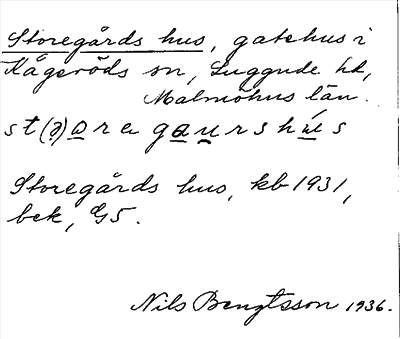 Storegårds hus, gatehus i
Kågeröds sn, Luggude hd,
Malmöhus län.
st(ə)orega u rshús
Storegårds hus, kb 1931,
bek, G5.
Nils Bengtsson 1936.